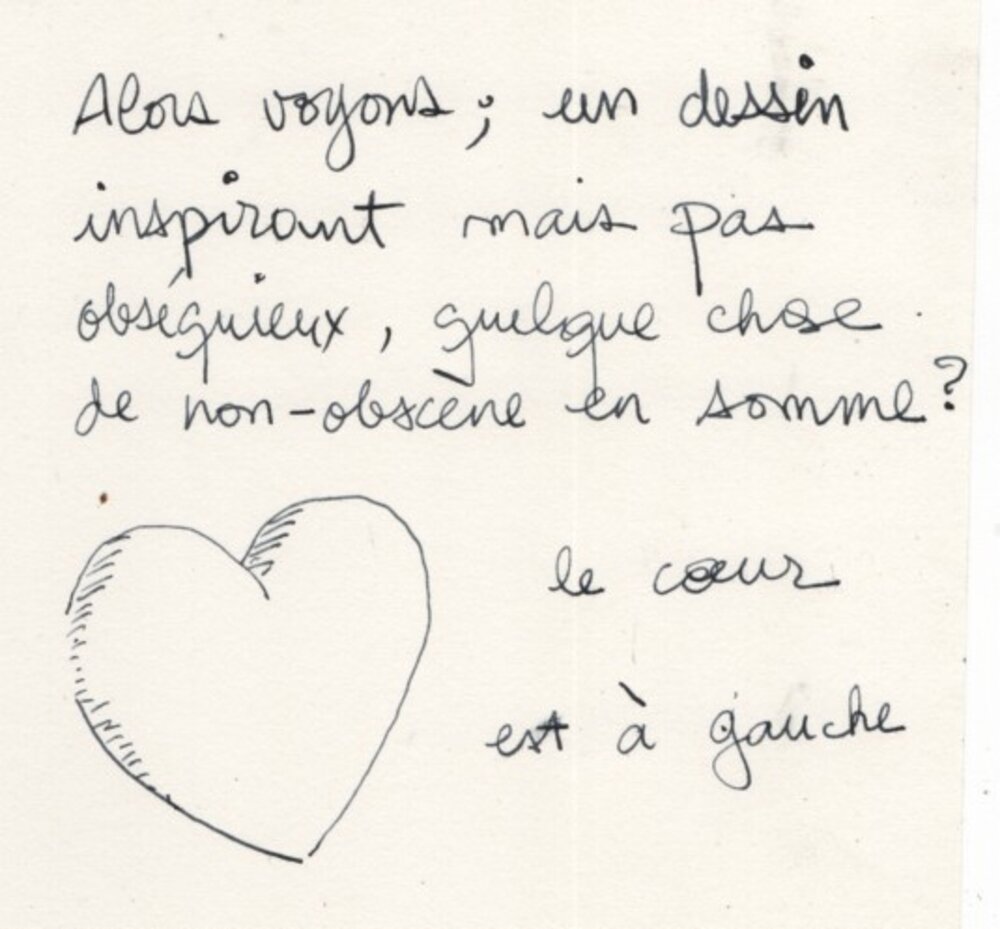 Alors voyons ; un dessin
inspirant mais pas
obséquieux, quelque chose
de non-obscène en somme ?
le cœur
est à gauche